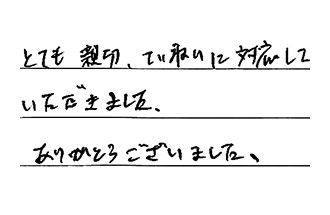 とても親切、ていねいに対応して
いただきました。
ありがとうございました。